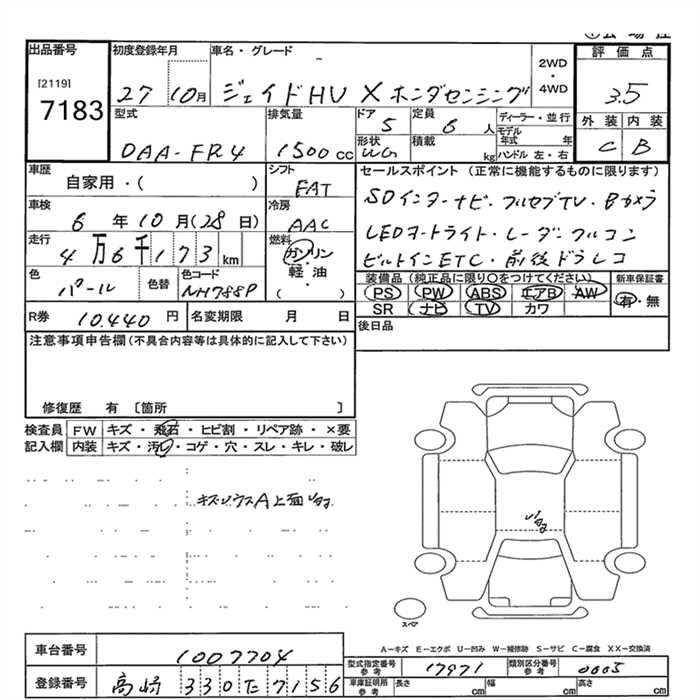 出品番号
[2119]
7183
初度登録年月
27 10月
車名・グレード
ジェイドHV X ホンダセンシング
2WD
・
4WD
評価点
3.5
外装 内装
C B
型式
DAA-FR4
排気量
1500cc
ドア
5
定員
6人
形状
WG
積載
kg
ディーラー・並行
モデル年式 年
ハンドル 左・右
車歴
自家用・( )
シフト
FAT
車検
6年10月(28日)
冷房
AAC
走行
4万6千173km
燃料
ガソリン
軽油
( )
色
パール
色替
色コード
NH788P
セールスポイント (正常に機能するものに限ります)
SDインターナビ・フルセグTV・Bカメラ
LEDオートライト・レーダークルコン
ビルトインETC・前後ドラレコ
装備品(純正品に限り○をつけてください)
PS PW ABS エアB AW
SR ナビ TV カワ
新車保証書
有・無
R券 10,440円
名変期限 月 日
後日品
注意事項申告欄(不具合内容等は具体的に記入して下さい)
修復歴 有 〔箇所 〕
検査員記入欄
FW キズ・飛石・ヒビ割・リペア跡・×要
内装 キズ・汚れ・コゲ・穴・スレ・キレ・破レ
スペア
A-キズ E-エクボ U-凹み W-補修跡 S-サビ C-腐食 XX-交換済
車台番号
1007704
登録番号
高崎 330 た 7156
型式指定番号
参考
17971
類別区分番号
参考
0005
車庫証明用
参考
長さ cm
幅 cm
高さ cm